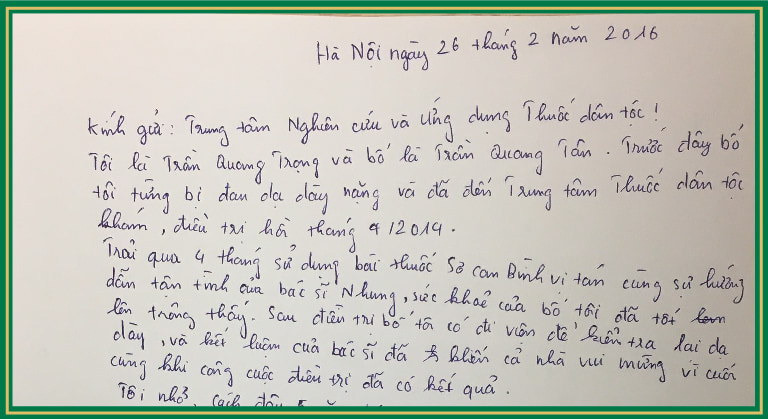 Hà Nội ngày 26 tháng 2 năm 2016
Kính gửi: Trung tâm Nghiên cứu và Ứng dụng Thuốc dân tộc!
Tôi là Trần Quang Trọng và bố là Trần Quang Tân. Trước đây bố
tôi từng bị đau dạ dày nặng và đã đến Trung tâm Thuốc dân tộc
khám, điều trị hồi tháng 9/2014.
Trải qua 4 tháng sử dụng bài thuốc Sơ can Bình vị tán cùng sự hướng
dẫn tận tình của bác sĩ Nhung, sức khoẻ của bố tôi đã tốt
lên trông thấy. Sau điều trị bố tôi có đi viện để kiểm tra lại dạ
dày, và kết luận của bác sĩ đã khiến cả nhà vui mừng vì cuối
cùng khi công cuộc điều trị đã có kết quả.
Tôi nhớ, cách đây 5